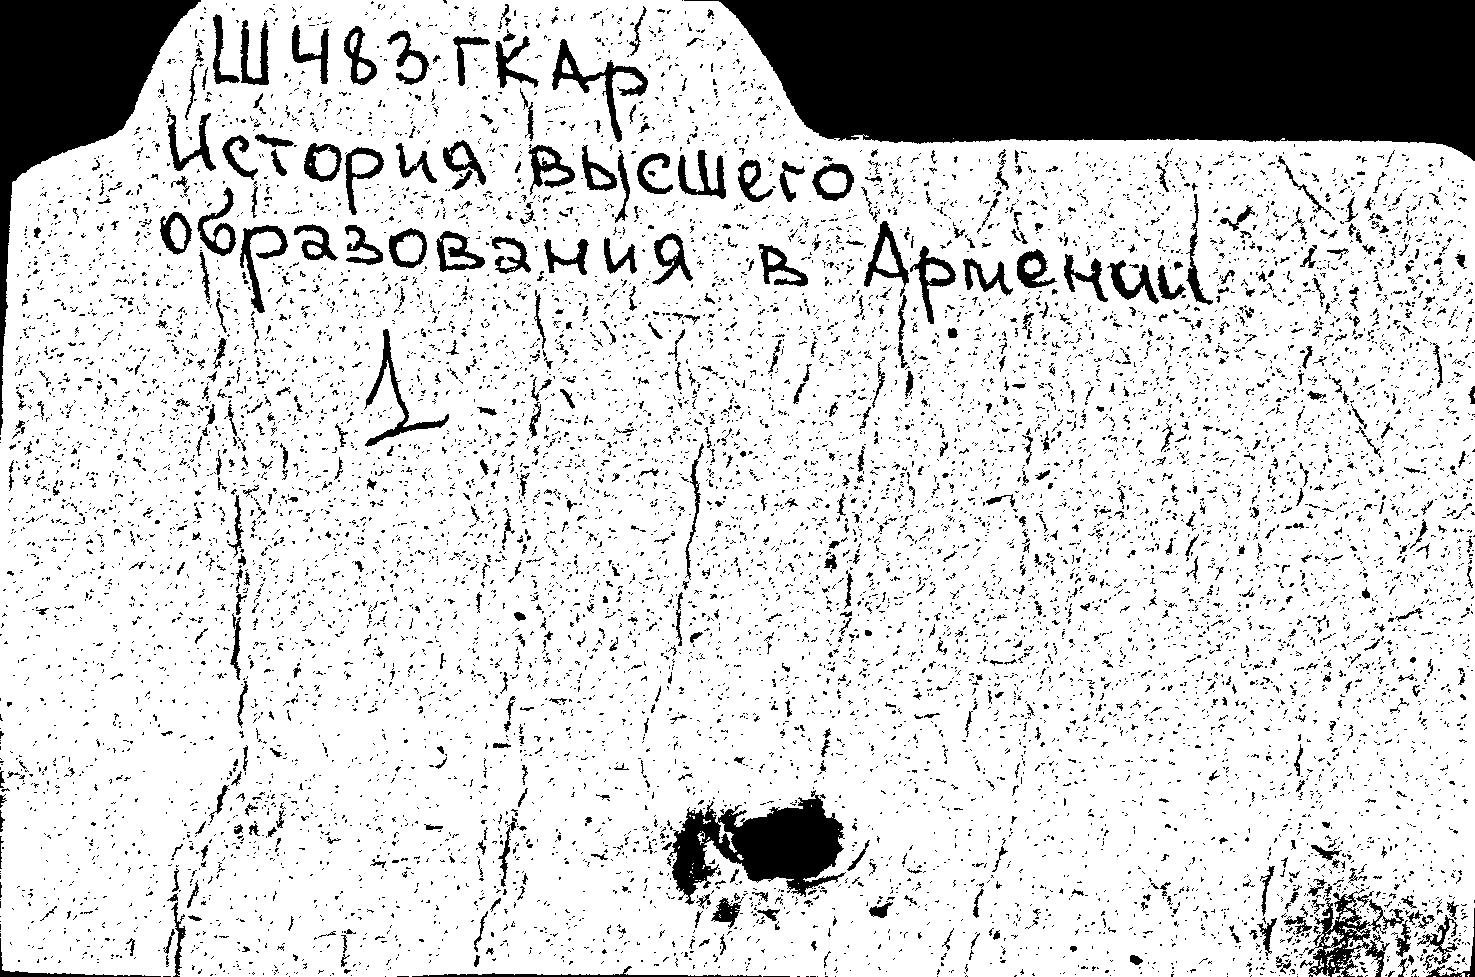 Ш483ГКАр
История высшего
образования в Армении
1